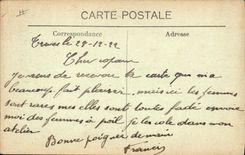 CARTE POSTALE
Correspondance
Adresse
le 28-12-22
Cher copain
Je viens de recevoir la carte qui m'a
beaucoup fait plaisir, mais ici les femmes
sont rares mes elles sont toutes fadé envoie
moi des femmes à poil je les colle dans mon
atelier
Bonne poignée de main
Francis